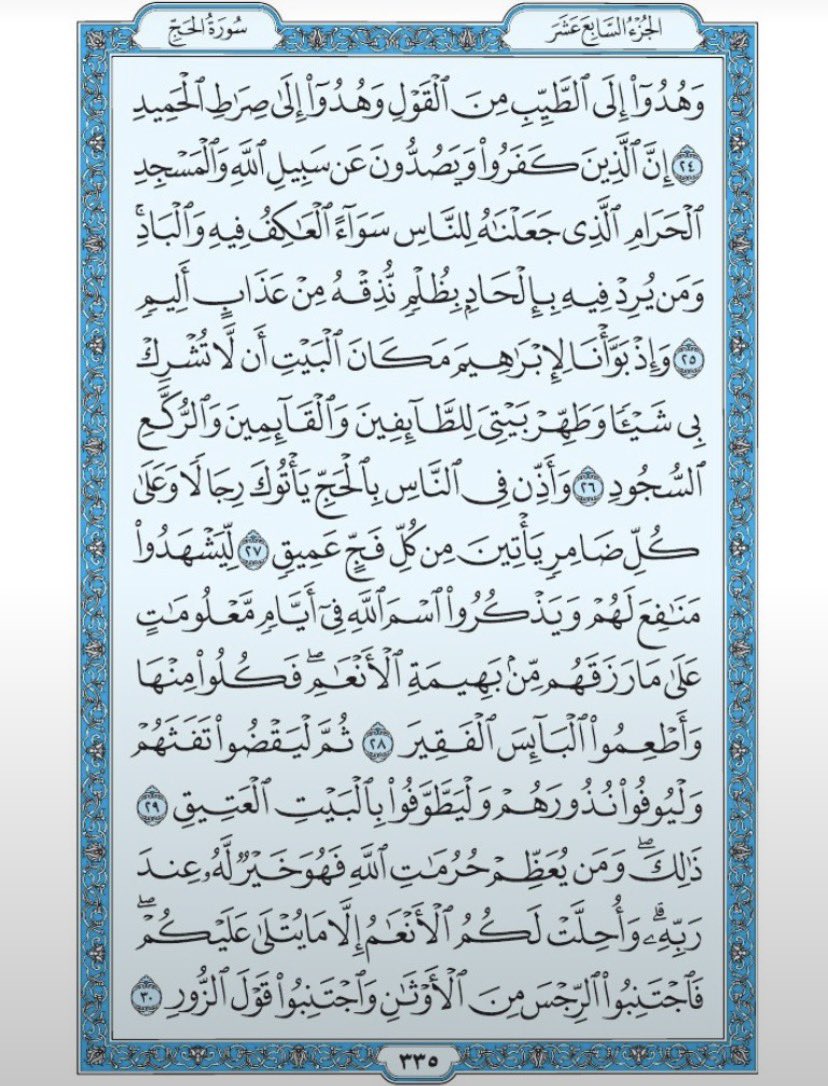 الجُزْءُ السَّابِعَ عَشَرَ
سُورَةُ الحَجِّ
وَهُدُوٓاْ إِلَى ٱلطَّيِّبِ مِنَ ٱلْقَوْلِ وَهُدُوٓاْ إِلَىٰ صِرَٰطِ ٱلْحَمِيدِ
٢٤ إِنَّ ٱلَّذِينَ كَفَرُواْ وَيَصُدُّونَ عَن سَبِيلِ ٱللَّهِ وَٱلْمَسْجِدِ
ٱلْحَرَامِ ٱلَّذِى جَعَلْنَٰهُ لِلنَّاسِ سَوَآءً ٱلْعَٰكِفُ فِيهِ وَٱلْبَادِۚ
وَمَن يُرِدْ فِيهِ بِإِلْحَادٍۭ بِظُلْمٍ نُّذِقْهُ مِنْ عَذَابٍ أَلِيمٍ
٢٥ وَإِذْ بَوَّأْنَا لِإِبْرَٰهِيمَ مَكَانَ ٱلْبَيْتِ أَن لَّا تُشْرِكْ
بِى شَيْـًٔا وَطَهِّرْ بَيْتِىَ لِلطَّآئِفِينَ وَٱلْقَآئِمِينَ وَٱلرُّكَّعِ
ٱلسُّجُودِ ٢٦ وَأَذِّن فِى ٱلنَّاسِ بِٱلْحَجِّ يَأْتُوكَ رِجَالًا وَعَلَىٰ
كُلِّ ضَامِرٍ يَأْتِينَ مِن كُلِّ فَجٍّ عَمِيقٍ ٢٧ لِّيَشْهَدُواْ
مَنَٰفِعَ لَهُمْ وَيَذْكُرُواْ ٱسْمَ ٱللَّهِ فِىٓ أَيَّامٍ مَّعْلُومَٰتٍ
عَلَىٰ مَا رَزَقَهُم مِّنۢ بَهِيمَةِ ٱلْأَنْعَٰمِۖ فَكُلُواْ مِنْهَا
وَأَطْعِمُواْ ٱلْبَآئِسَ ٱلْفَقِيرَ ٢٨ ثُمَّ لْيَقْضُواْ تَفَثَهُمْ
وَلْيُوفُواْ نُذُورَهُمْ وَلْيَطَّوَّفُواْ بِٱلْبَيْتِ ٱلْعَتِيقِ ٢٩
ذَٰلِكَۖ وَمَن يُعَظِّمْ حُرُمَٰتِ ٱللَّهِ فَهُوَ خَيْرٌ لَّهُۥ عِندَ
رَبِّهِۦۗ وَأُحِلَّتْ لَكُمُ ٱلْأَنْعَٰمُ إِلَّا مَا يُتْلَىٰ عَلَيْكُمْۖ
فَٱجْتَنِبُواْ ٱلرِّجْسَ مِنَ ٱلْأَوْثَٰنِ وَٱجْتَنِبُواْ قَوْلَ ٱلزُّورِ ٣٠
٣٣٥